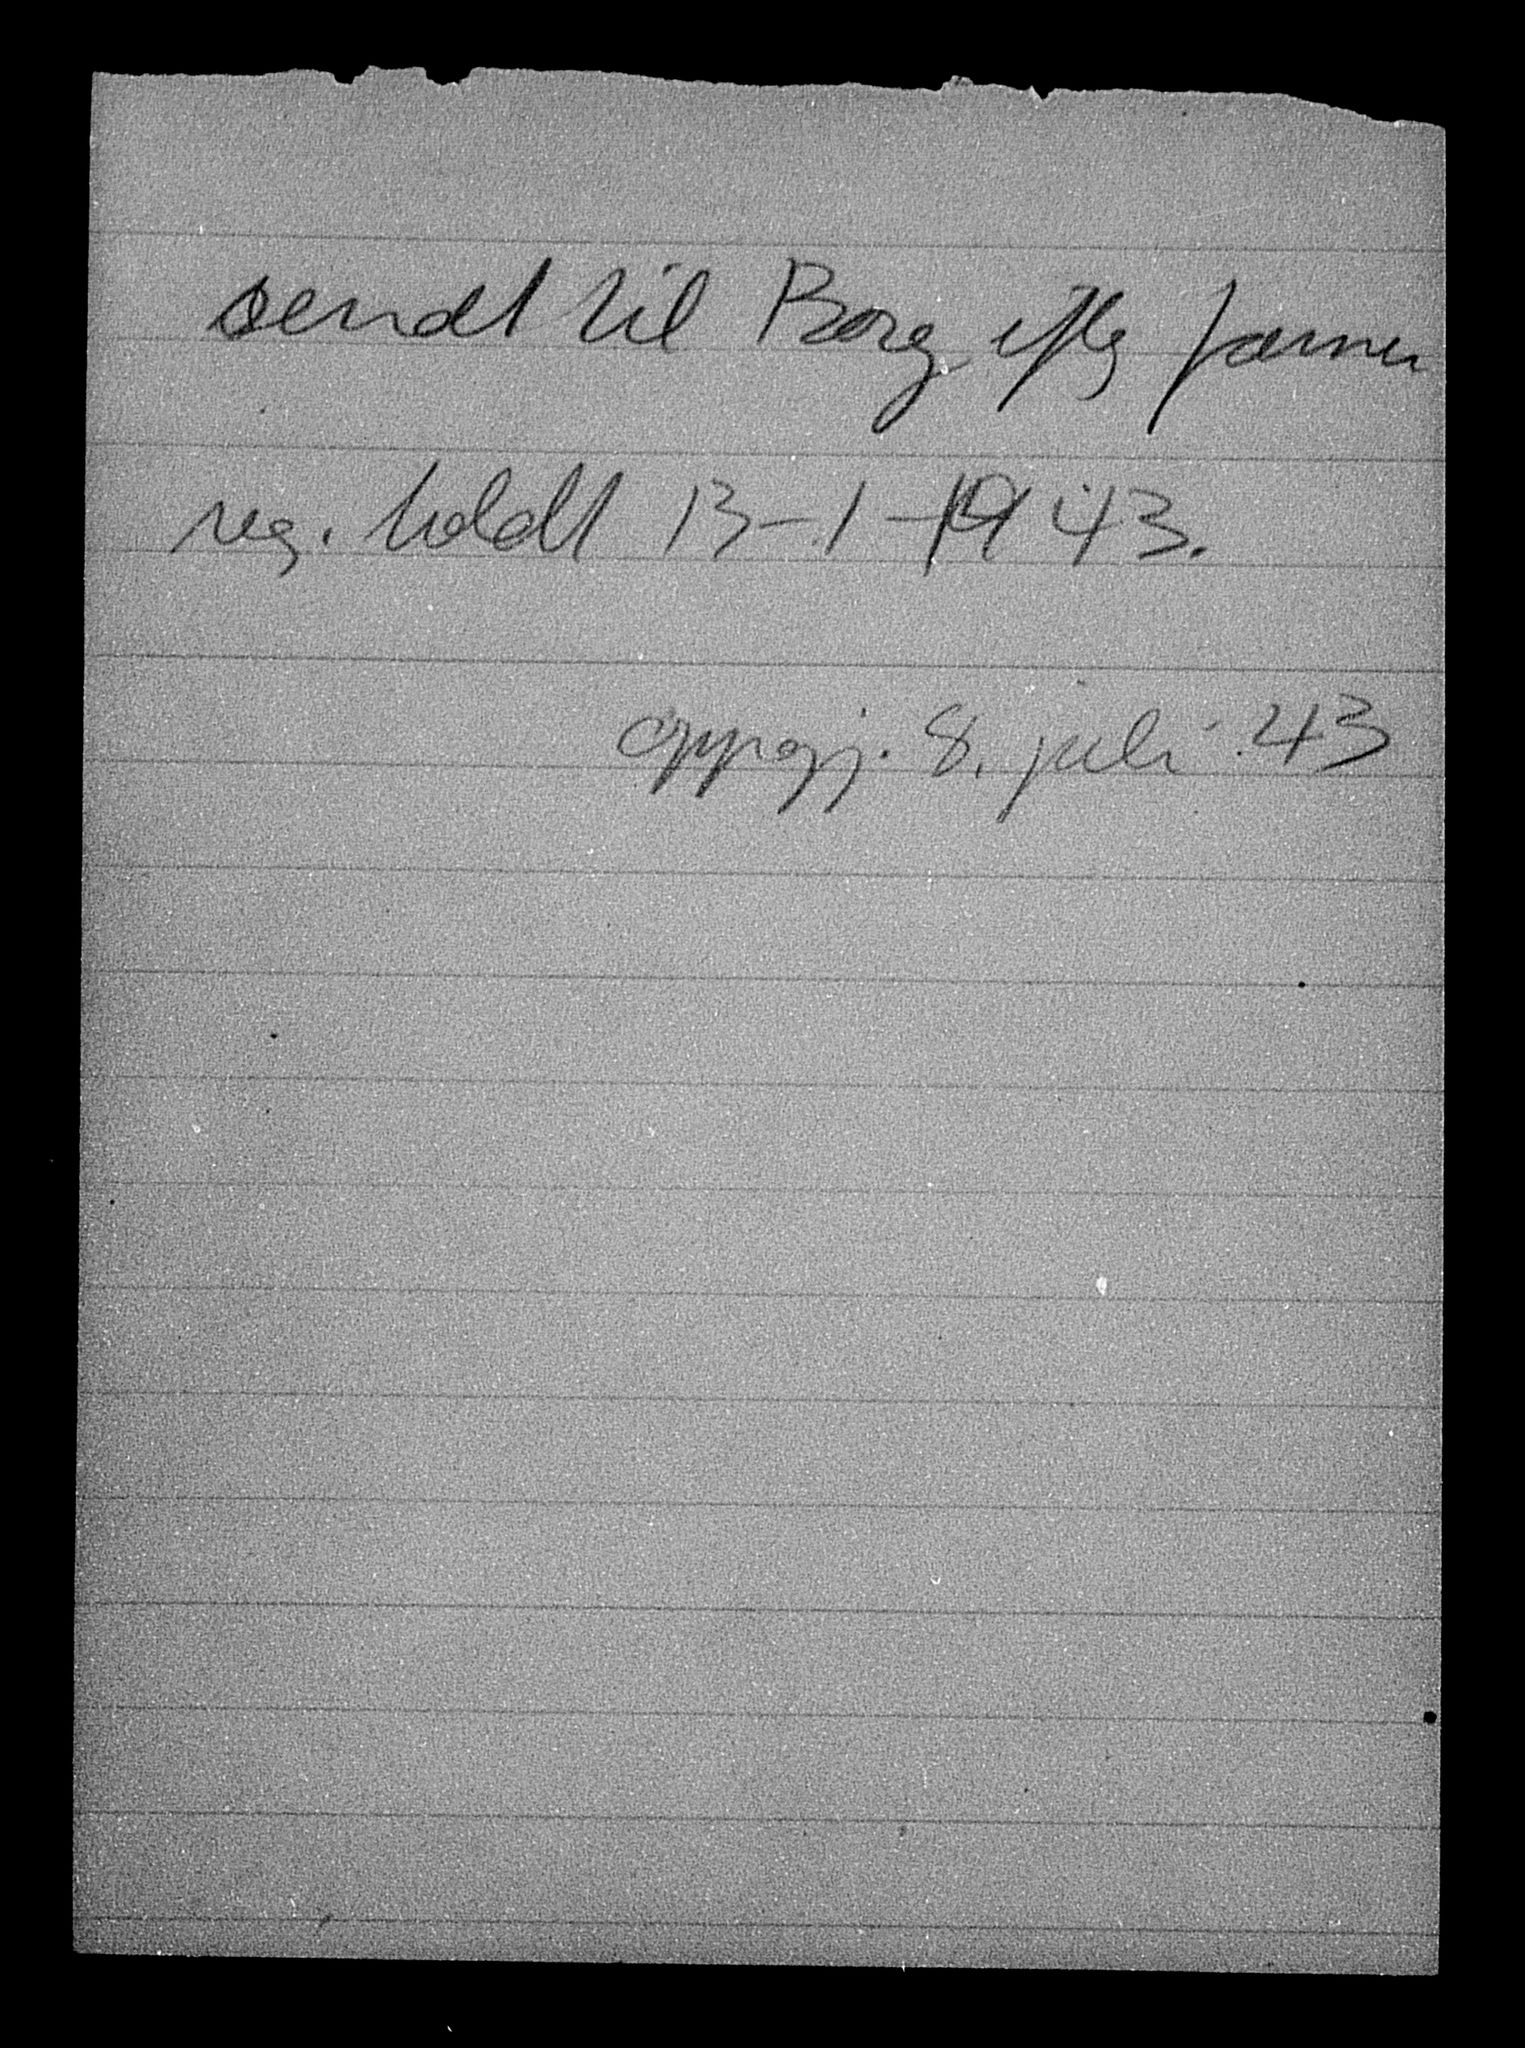 sendt til Borg iflg
reg. holdt 13-1-1943.
oppgj. 8. juli 43